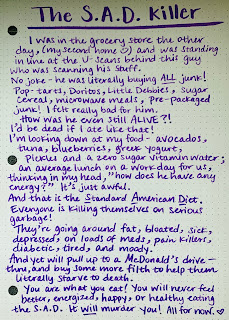 The S.A.D. Killer
I was in the grocery store the other
day, (my second home ☺) and was standing
in line at the U-Scans behind this guy
who was scanning his stuff.
No joke - he was literally buying ALL junk!
Pop-tarts, Doritos, Little Debbies, Sugar
cereal, microwave meals, Pre-packaged
junk! I felt really bad for him.
How was he even still ALIVE?!
I'd be dead if I ate like that!
I'm looking down at my food - avocados,
tuna, blueberries, greek yogurt,
Plexus and a zero sugar vitamin water;
an average lunch on a work-day for us,
thinking in my head, "how does he have any
energy?" It's just awful.
And that is the Standard American Diet.
Everyone is killing themselves on serious
garbage!
They're going around fat, bloated, sick,
depressed, on loads of meds, pain killers,
diabetic, tired, and moody.
And yet will pull up to a McDonald's drive-
thru, and buy some more filth to help them
literally starve to death.
You are what you eat! You will never feel
better, energized, happy, or healthy eating
the S.A.D. It will murder you! All for now. ♡